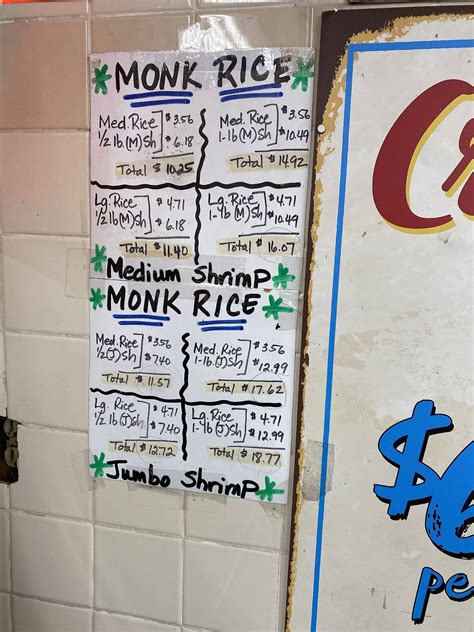 MONK RICE
Med. Rice $3.56
1/2 lb.(M)Sh $6.18
Total $10.25
Med. Rice $3.56
1-lb(M)Sh $10.49
Total $14.92
Lg. Rice $4.71
1/2 lb(M)Sh $6.18
Total $11.40
Lg. Rice $4.71
1-lb(M)Sh $10.49
Total $16.07
Medium ShrimP
MONK RICE
Med. Rice $3.56
1/2(J)Sh $7.40
Total $11.57
Med. Rice $3.56
1-lb.(J)Sh $12.99
Total $17.62
Lg. Rice $4.71
1/2 lb.(J)Sh $7.40
Total $12.72
Lg. Rice $4.71
1-lb(J)Sh $12.99
Total $18.77
Jumbo ShrimP